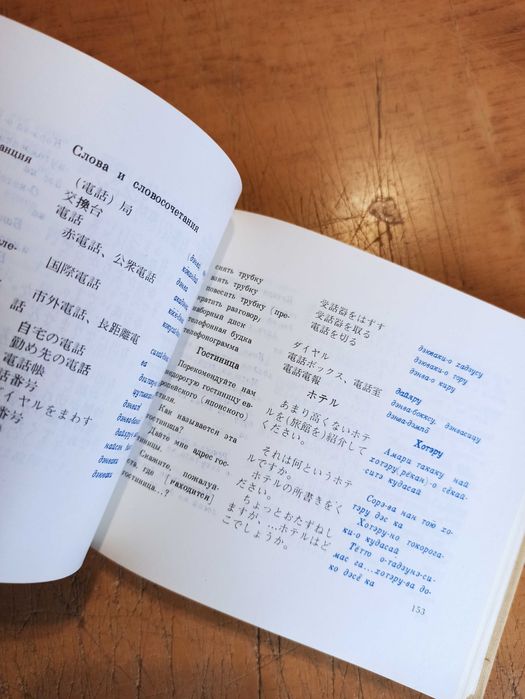 Слова и словосочетания
анция
(電話)局
交換台
電話
赤電話、公衆電話
国際電話
市外電話、長距離電
話
自宅の電話
勤め先の電話
電話帳
話番号
イヤルをまわす
話番号
снять трубку
взять трубку
повесить трубку (пре-
кратить разговор)
наборный диск
телефонная будка
телефонограмма
Гостиница
Порекомендуйте нам
недорогую гостиницу ев-
ропейского (японского)
стиля.
Как называется эта
гостиница?
Дайте мне адрес гос-
тиницы.
Скажите, пожалуй-
ста, где [находится]
гостиница...?
受話器をはずす
受話器を取る
電話を切る
ダイヤル
電話ボックス、電話室
電話電報
ホテル
あまり高くないホテ
ルを(旅館を)紹介して
ください。
それは何というホテ
ルですか。
ホテルの所書きをく
ださい。
ちょっとおたずねし
ますが、…ホテルはど
こでしょうか。
дзюваки-о хадзусу
дзюваки-о тору
дэнва-о киру
дайяру
дэнва-боккусу, дэнвасицу
дэнва-дэмпо̄
Хотэру
Амари такаку най
хотэру(рёкан)-о сёкай-
ситэ кудасай
Сорэ-ва нан тою хо-
тэру дэс ка
Хотэру-но токорога-
ки-о кудасай
Тётто о-тадзунэ-си-
мас га...хотэру-ва до-
ко дэсё ка
153